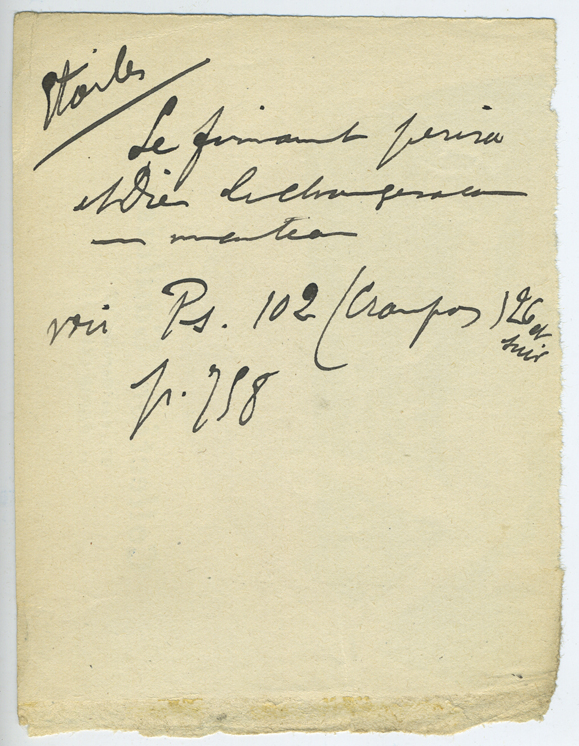 Etoiles
Le firmament périra
et Dieu le changera com
un manteau
voir Ps. 102 (Crampon) 26 et suiv
p. 758